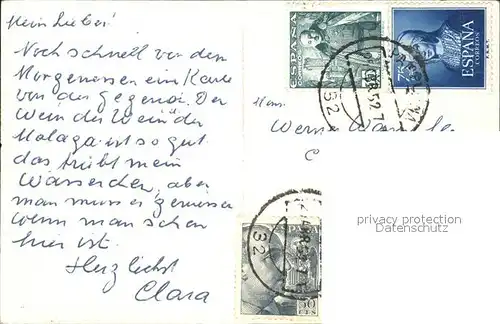 Mein Lieber!
Noch schnell vor dem
Morgenessen ein Karte
von der Gegend. Der
Wein der Wein der
Malaga ist so gut
das trübt mein
Wässerchen, aber
man muss es geniessen
wenn man schon
hier ist.
Herzlichst
Clara
ESPAÑA
ESPAÑA
CORREOS
75
52
.52.7
Werner
C
privacy protection
Datenschutz
32
50
CTS